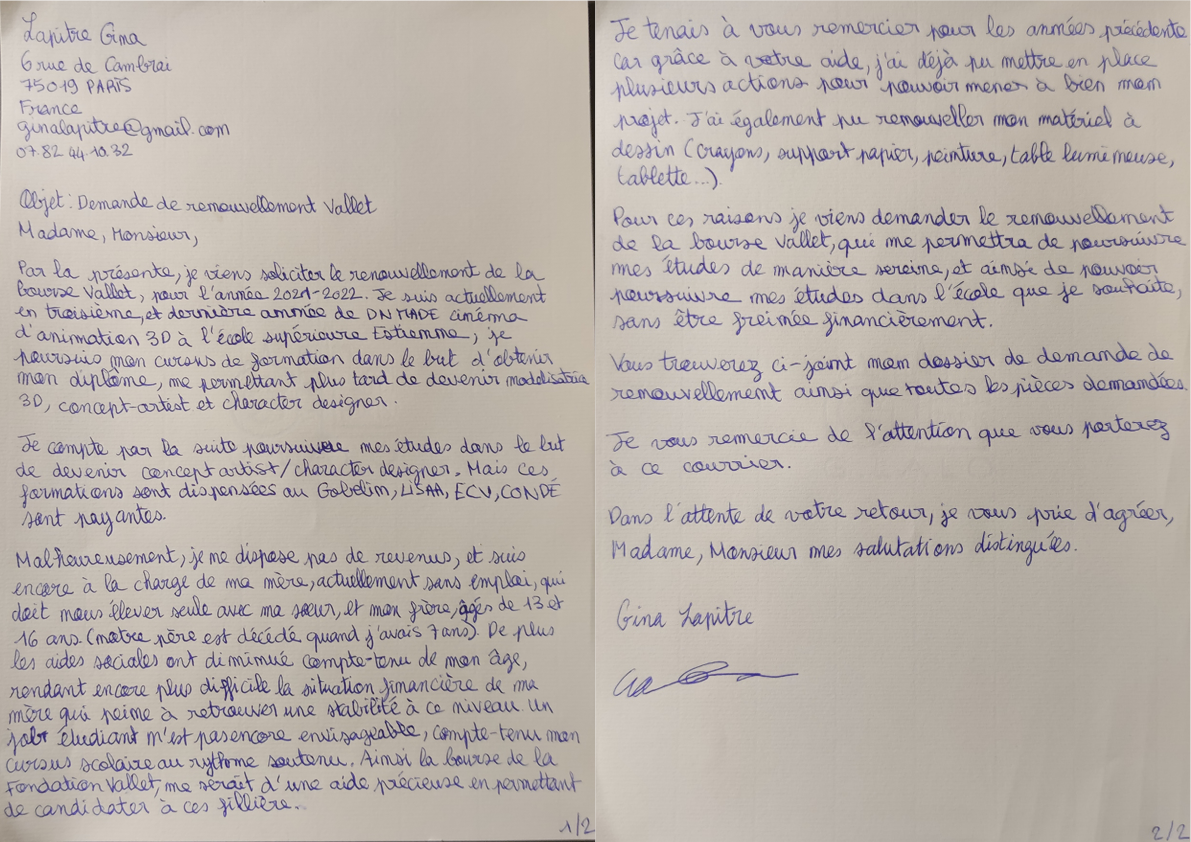 Lapitre Gina
6 rue de Cambrai
75019 PARIS
France
ginalapitre@gmail.com
07.82.44.10.32
Objet : Demande de renouvellement Vallet
Madame, Monsieur,
Par la présente, je viens soliciter le renouvellement de la
bourse Vallet, pour l'année 2021-2022. Je suis actuellement
en troisième, et dernière année de DNMADE cinéma
d'animation 3D à l'école supérieure Estienne, je
poursuis mon cursus de formation dans le but d'obtenir
mon diplôme, me permettant plus tard de devenir modélisatrice
3D, concept-artist et character designer.
Je compte par la suite poursuivre mes études dans le but
de devenir concept artist/character designer. Mais ces
formations sont dispensées au Gobelin, LISAA, ECV, CONDÉ
sont payantes.
Malheureusement, je ne dispose pas de revenus, et suis
encore à la charge de ma mère, actuellement sans emploi, qui
doit nous élever seule avec ma sœur, et mon frère, âgés de 13 et
16 ans. (notre père est décédé quand j'avais 7 ans). De plus
les aides sociales ont diminué compte-tenu de mon âge,
rendant encore plus difficile la situation financière de ma
mère qui peine à retrouver une stabilité à ce niveau. Un
job étudiant m'est pas encore envisageable, compte-tenu mon
cursus scolaire au rythme soutenu. Ainsi la bourse de la
Fondation Vallet, me serait d'une aide précieuse en permettant
de candidater à ces fillière..
1/2
Je tenais à vous remercier pour les années précédente
car grâce à votre aide, j'ai déjà pu mettre en place
plusieurs actions pour pouvoir mener à bien mon
projet. J'ai également pu renouveller mon matériel à
dessin (crayons, support papier, peinture, table lumineuse,
tablette...).
Pour ces raisons je viens demander le renouvellement
de la bourse Vallet, qui me permettra de poursuivre
mes études de manière sereine, et ainsi de pouvoir
poursuivre mes études dans l'école que je souhaite,
sans être freinée financièrement.
Vous trouverez ci-joint mon dossier de demande de
renouvellement ainsi que toutes les pièces demandées.
Je vous remercie de l'attention que vous porterez
à ce courrier.
Dans l'attente de votre retour, je vous prie d'agréer,
Madame, Monsieur mes salutations distinguées.
Gina Lapitre
2/2